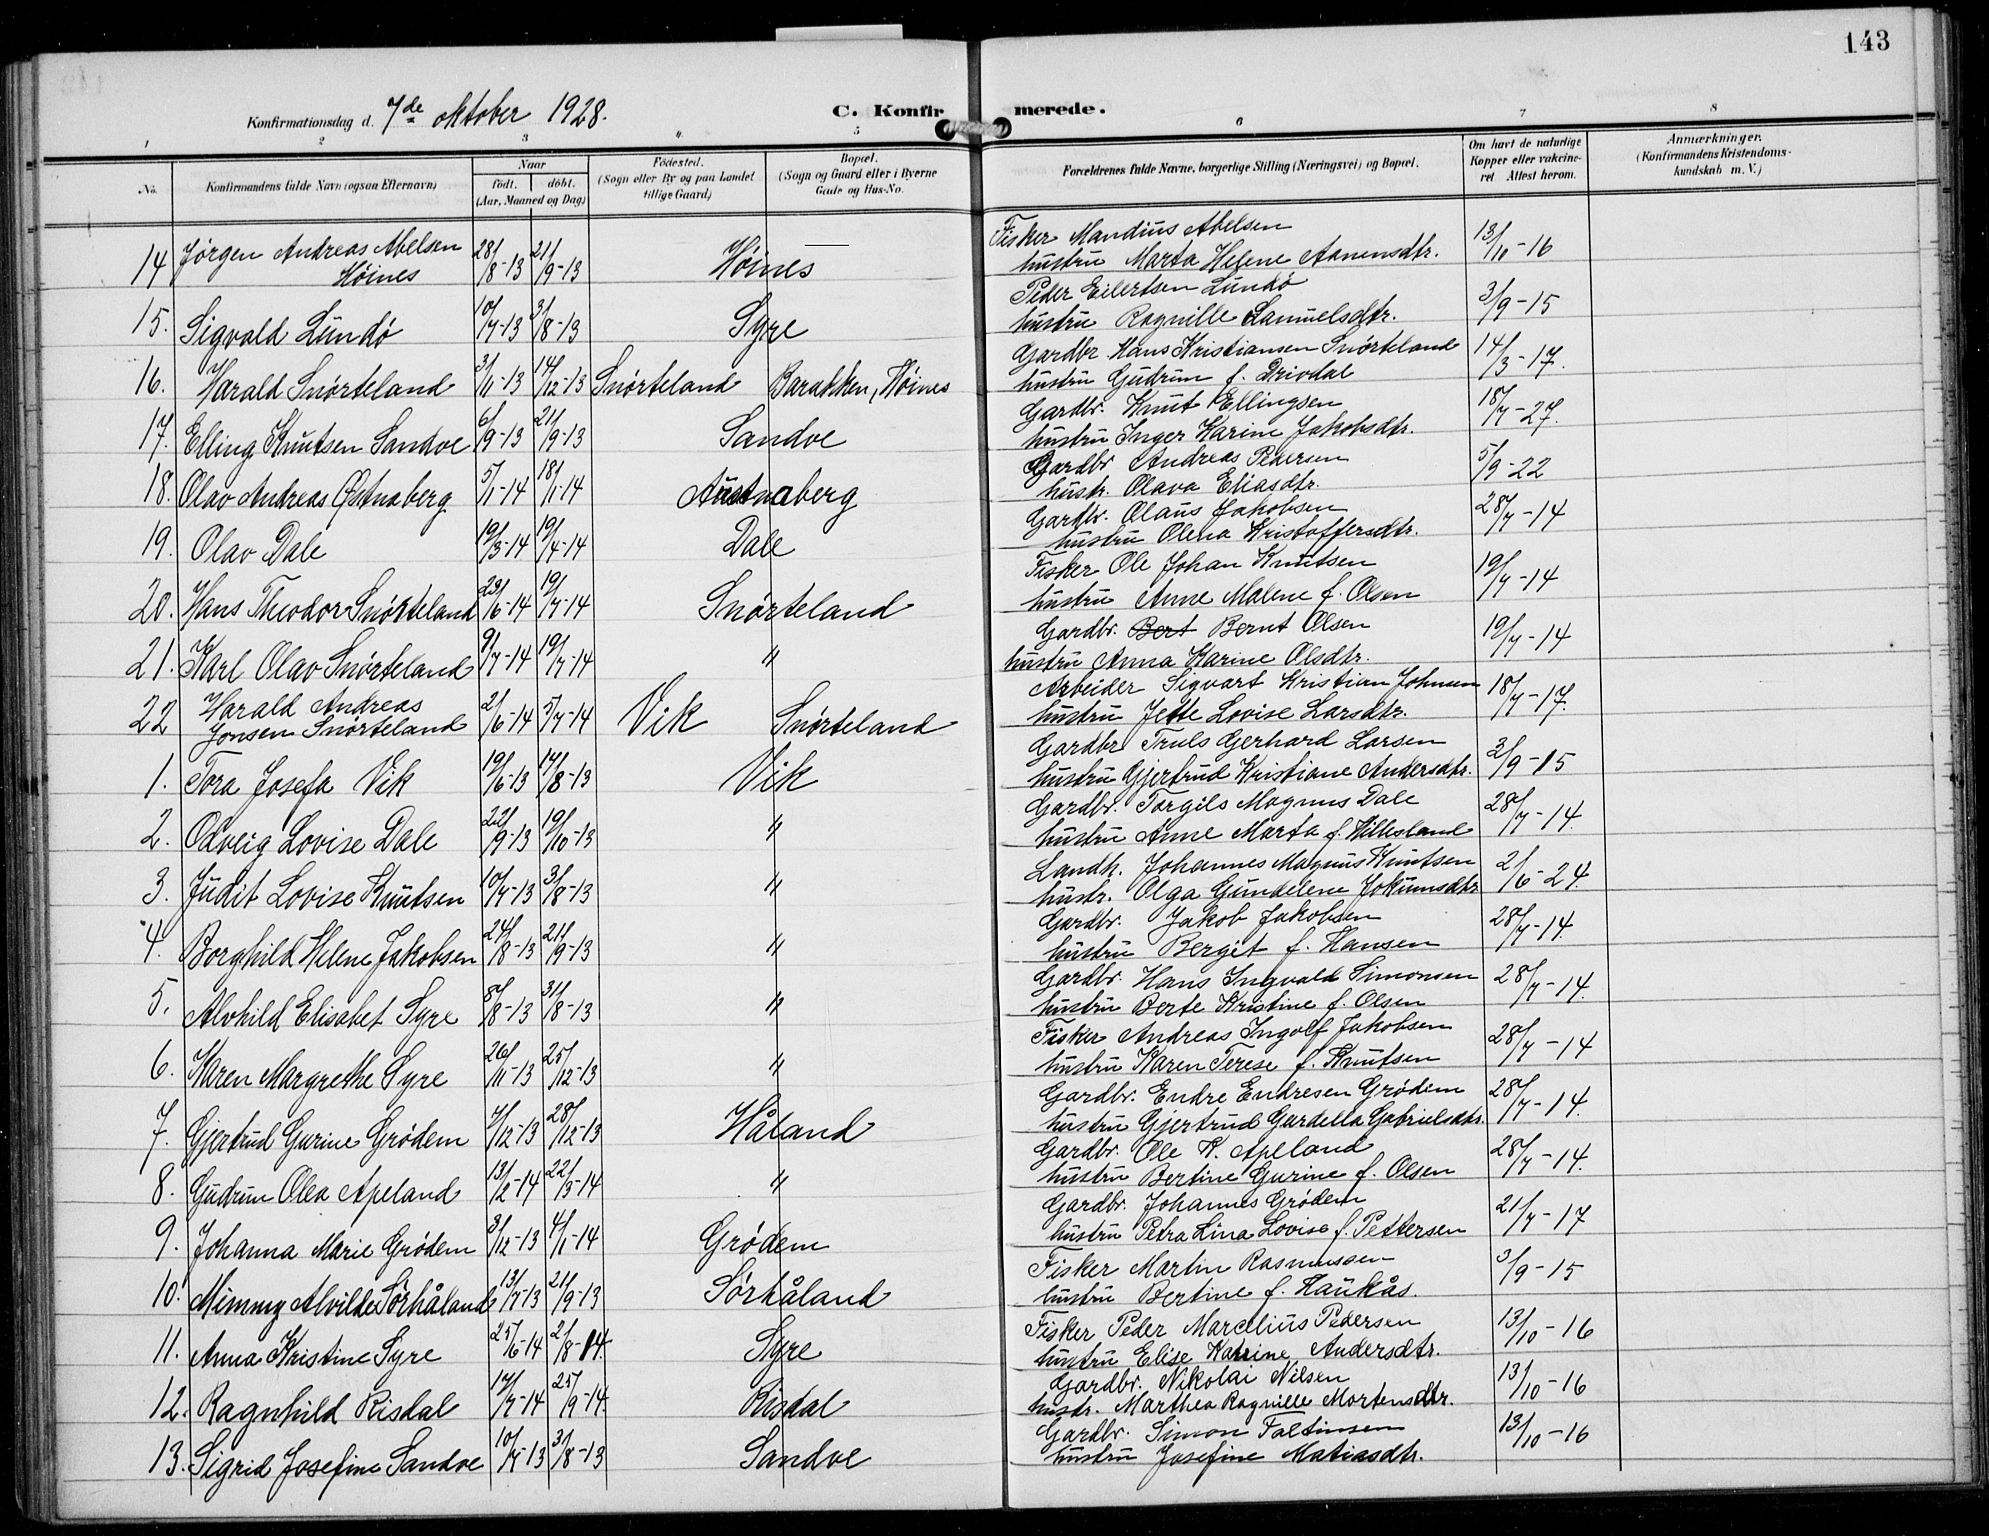 143
Konfirmationsdag d. 7de oktober 1928.
C. Konfirmerede.
1 2 3 4 5 6 7 8
No. Konfirmandens fulde Navn (ogsaa Efternavn) Naar født. døbt. (Aar, Maaned og Dag) Fødested. (Sogn eller By og paa Landet tillige Gaard) Bopæl. (Sogn og Gaard eller i Byerne Gade og Hus-No. Forældrenes fulde Navne, borgerlige Stilling (Næringsvei) og Bopæl. Om havt de naturlige Kopper eller vakcineret Attest herom. Anmærkninger. (Konfirmandens Kristendomskundskab m. V.)
14 Jørgen Andreas Abelsen Høines 28/8-13 21/9-13 Høines Fisker Mandius Abelsen
hustru Marta Helene Aanensdtr. 13/10-16
15. Sigvald Lundö 10/7-13 31/8-13 Syre Peder Eilertsen Lundö
hustru Ragnille Samuelsdtr. 3/9-15
16. Harald Snörteland 3/11-13 14/12-13 Snörteland Barakken, Höines Gardbr Hans Kristiansen Snörteland
hustru Gudrun f. Drivdal 14/3-17.
17. Elling Knutsen Sandve 6/9-13 21/9-13 Sandve Gardbr. Knut Ellingsen
hustru Inger Karine Jakobsdtr. 18/7-27.
18. Olav Andreas Östnaberg 5/1-14 18/1-14 Austnaberg Gardbr Andreas Pedersen
hustr. Olava Eliasdtr. 5/9-22
19. Olav Dale 19/3-14 19/4-14 Dale Gardbr. Olaus Jakobsen
hustru Olena Kristoffersdtr. 28/7-14
20. Hans Theodor Snörteland 29/6-14 19/7-14 Snörteland Fisker Ole Johan Knutsen
hustru Anne Malene f. Olsen 19/7-14
21. Karl Olav Snörteland 9/7-14 19/7-14 " Gardbr. Bert Bernt Olsen
hustru Anna Karine Olsdtr. 19/7-14
22 Harald Andreas Jonsen Snörteland 2/6-14 5/7-14 Vik Snörteland Arbeider Sigvart Kristian Johnsen
hustru Jette Lovise Larsdtr. 18/7-17.
1. Tora Josefa Vik 19/6-13 17/8-13 Vik Gardbr Truls Gerhard Larsen
hustru Gjertrud Kristiane Andersdtr. 3/9-15
2. Odveig Lovise Dale 22/9-13 19/10-13 " Gardbr. Torgils Magnus Dale
hustru Anne Marta f. Hillesland 28/7-14.
3. Judit Lovise Knutsen 10/7-13 31/8-13 " Landh. Johannes Magnus Knutsen
hustr. Olga Gundelene Jokumsdtr 2/6-24.
4. Borghild Helene Jakobsen 24/8-13 21/9-13 " Gardbr. Jakob Jakobsen
hustru Bergit f. Hansen 28/7-14.
5. Alvhild Elisabet Syre 8/8-13 31/8-13 " Gardbr. Hans Ingvald Simonsen
hustru Berte Kristine f. Olsen 28/7-14.
6. Karen Margrethe Syre 26/11-13 25/12-13 " Fisker Andreas Ingolf Jakobsen
hustru Karen Terese f. Knutsen 28/7-14
7. Gjertrud Gurine Grødem 7/12-13 28/12-13 Håland Gardbr. Endre Endresen Grødem
hustru Gjertrud Gardella Gabrielsdtr. 28/7-14.
8. Gudrun Olea Apeland 13/2-14 22/3-14 " Gardbr. Ole K. Apeland
hustru Bertine Gurine f. Olsen 28/7-14.
9. Johanna Marie Grødem 3/12-13 4/1-14 Grødem Gardbr. Johannes Grødem
hustru Petra Lina Lovise f. Pettersen 21/7-17
10. Mimmy Alvilde Sørhåland 13/7-13 21/9-13 Sørhåland Fisker Martin Rasmussen
hustru Bertine f. Haukås. 3/9-15
11. Anna Kristine Syre 25/6-14 2/8-14. Syre Fisker Peder Marcelius Pedersen
hustru Elise Katrine Andersdtr. 13/10-16
12. Ragnhild Risdal 17/7-14 25/9-14. Risdal Gardbr. Nikolai Nilsen
hustr. Marthea Ragnille Mortensdtr. 13/10-16
13. Sigrid Josefine Sandve 10/7-13 31/8-13 Sandve Gardbr. Simon Faltinsen
hustru Josefine Matiasdtr. 13/10-16